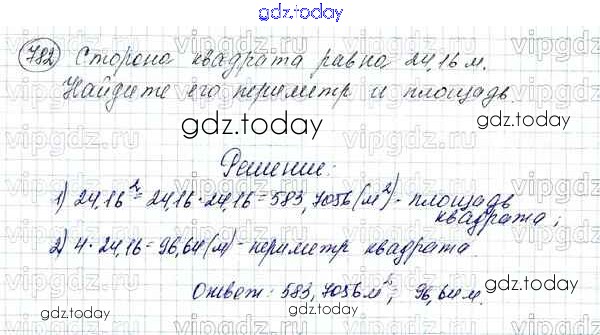 gdz.today
782 Сторона квадрата равна 24,16 м.
Найдите его периметр и площадь.
gdz.today gdz.today
Решение:
1) 24,16² = 24,16 · 24,16 = 583,7056 (м²) - площадь
квадрата;
2) 4 · 24,16 = 96,64 (м) - периметр квадрата
Ответ: 583,7056 м²; 96,64 м.
gdz.today gdz.today